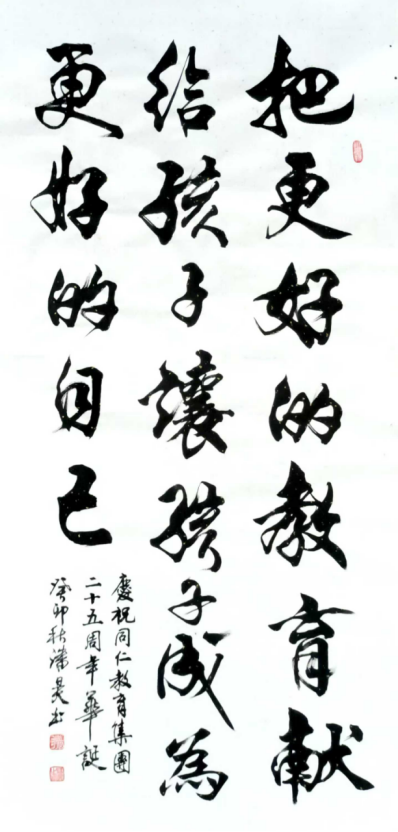 把更好的教育献
给孩子讓孩子成為
更好的自己
慶祝同仁教育集團
二十五周年華誕
癸卯秋潘㫤书